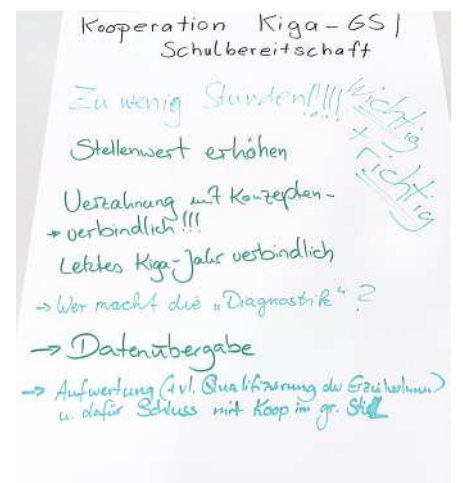 Kooperation Kiga-GS /
Schulbereitschaft
Zu wenig Stunden!!!!!
Wichtig
+
richtig
Stellenwert erhöhen
Verzahnung mit Konzepten -
→ verbindlich!!!
Letztes Kiga-Jahr verbindlich
→ Wer macht die „Diagnostik“?
→ Datenübergabe
→ Aufwertung (evl. Qualifizierung der ErzieherInnen)
u. dafür Schluss mit Koop im gr. Stil